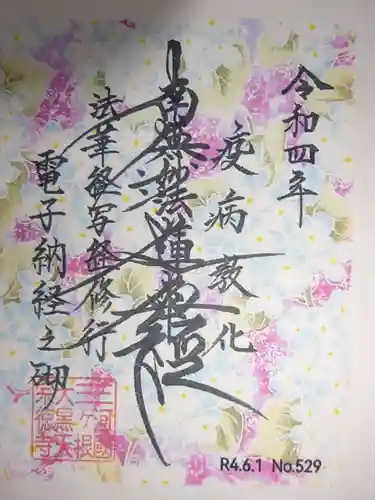 令和四年
疫病教化
南無妙法蓮華経
法華経写経修行
電子納経之砌
R4.6.1 No.529